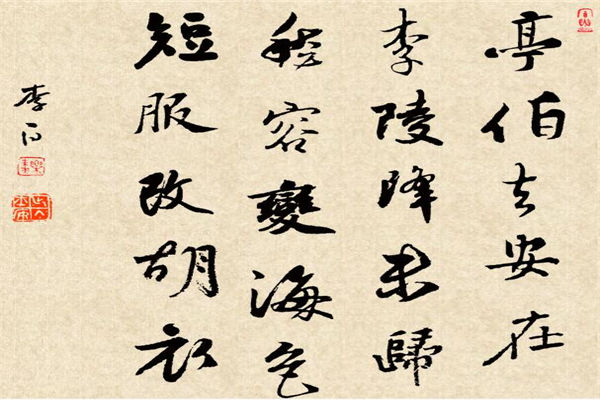 亭伯去安在
李陵降未歸
愁容變海色
短服改胡衣
李